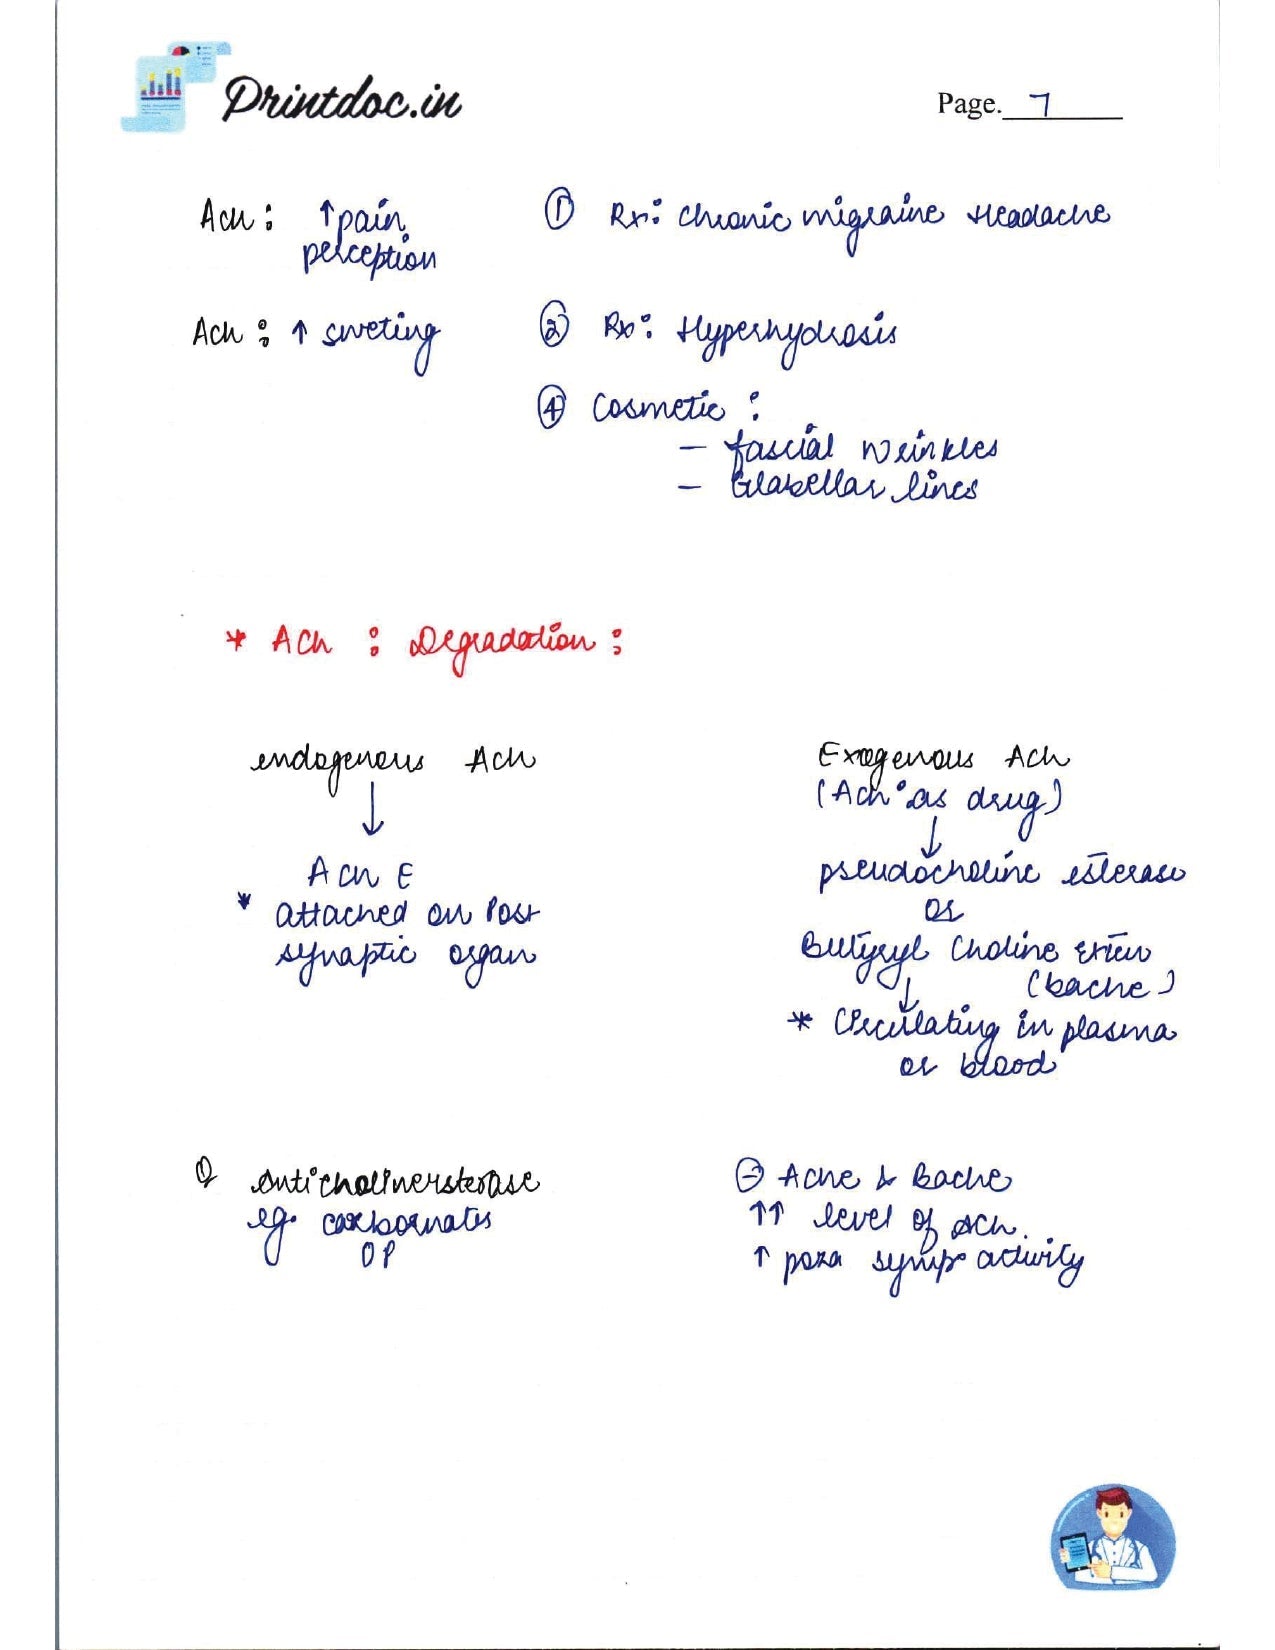 Printdoc.in
Page. 7
Ach : ↑ pain ① Rx: chronic migraine Headache
perception
Ach : ↑ sweting ② Rx: Hyperhydrosis
④ Cosmetic :
– fascial wrinkles
– Glabellar lines
* ACh : Degradation :
endogenous Ach Exogenous Ach
↓ (Ach as drug)
↓
Ach E pseudocholine esterase
* attached on Post or
synaptic organ Butyryl choline
↓ (bache)
* Circulating in plasma
or blood
Q Anticholinersterase ⊖ Ache & Bache
eg. carbornates ↑↑ level of Ach.
OP ↑ para symp. activity